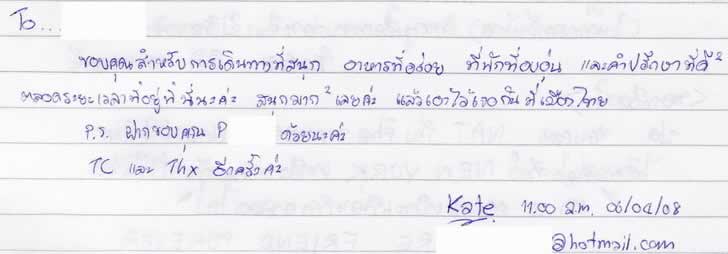 To...
ขอบคุณสำหรับการเดินทางที่สนุก อาหารที่อร่อย ที่พักที่อบอุ่น และคำปรึกษาที่ดี²
ตลอดระยะเวลาที่อยู่ที่นี่นะค่ะ สนุกมาก² เลยค่ะ แล้วเอาไว้เจอกันที่เมืองไทย
P.S. ฝากขอบคุณ P ด้วยนะค่ะ
TC และ Thx อีกครั้งค่ะ
Kate 11.00 a.m. 06/04/08
@hotmail.com